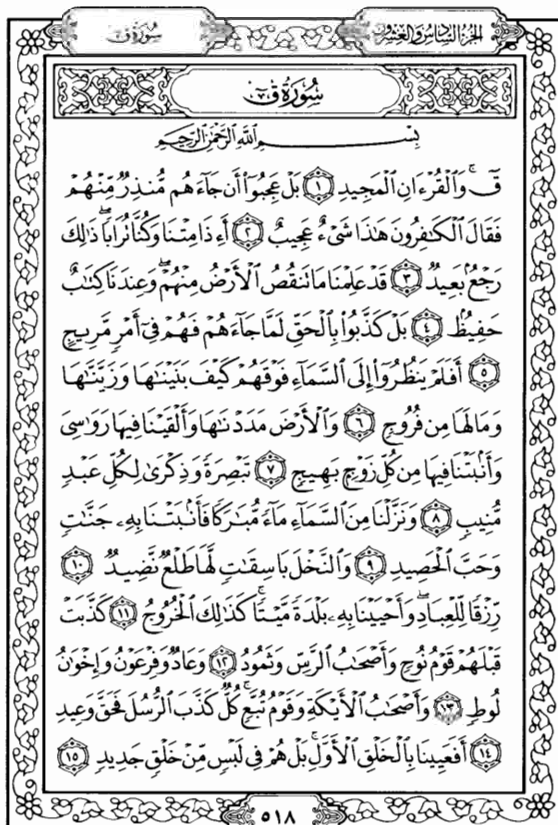 الجزء السادس والعشرون
سورة ق
سُورَةُ ق
بِسْمِ اللَّهِ الرَّحْمَٰنِ الرَّحِيمِ
قٓۚ وَالْقُرْءَانِ الْمَجِيدِ ١ بَلْ عَجِبُوٓا۟ أَن جَآءَهُم مُّنذِرٌ مِّنْهُمْ
فَقَالَ الْكَٰفِرُونَ هَٰذَا شَىْءٌ عَجِيبٌ ٢ أَءِذَا مِتْنَا وَكُنَّا تُرَابًاۖ ذَٰلِكَ
رَجْعٌۢ بَعِيدٌ ٣ قَدْ عَلِمْنَا مَا تَنقُصُ الْأَرْضُ مِنْهُمْۖ وَعِندَنَا كِتَٰبٌ
حَفِيظٌۢ ٤ بَلْ كَذَّبُوا۟ بِالْحَقِّ لَمَّا جَآءَهُمْ فَهُمْ فِىٓ أَمْرٍ مَّرِيجٍ
٥ أَفَلَمْ يَنظُرُوٓا۟ إِلَى السَّمَآءِ فَوْقَهُمْ كَيْفَ بَنَيْنَٰهَا وَزَيَّنَّٰهَا
وَمَا لَهَا مِن فُرُوجٍ ٦ وَالْأَرْضَ مَدَدْنَٰهَا وَأَلْقَيْنَا فِيهَا رَوَٰسِىَ
وَأَنۢبَتْنَا فِيهَا مِن كُلِّ زَوْجٍۭ بَهِيجٍ ٧ تَبْصِرَةً وَذِكْرَىٰ لِكُلِّ عَبْدٍ
مُّنِيبٍ ٨ وَنَزَّلْنَا مِنَ السَّمَآءِ مَآءً مُّبَٰرَكًا فَأَنۢبَتْنَا بِهِۦ جَنَّٰتٍ
وَحَبَّ الْحَصِيدِ ٩ وَالنَّخْلَ بَاسِقَٰتٍ لَّهَا طَلْعٌ نَّضِيدٌ ١٠
رِّزْقًا لِّلْعِبَادِۖ وَأَحْيَيْنَا بِهِۦ بَلْدَةً مَّيْتًاۚ كَذَٰلِكَ الْخُرُوجُ ١١ كَذَّبَتْ
قَبْلَهُمْ قَوْمُ نُوحٍ وَأَصْحَٰبُ الرَّسِّ وَثَمُودُ ١٢ وَعَادٌ وَفِرْعَوْنُ وَإِخْوَٰنُ
لُوطٍ ١٣ وَأَصْحَٰبُ الْأَيْكَةِ وَقَوْمُ تُبَّعٍۚ كُلٌّ كَذَّبَ الرُّسُلَ فَحَقَّ وَعِيدِ
١٤ أَفَعَيِينَا بِالْخَلْقِ الْأَوَّلِۚ بَلْ هُمْ فِى لَبْسٍ مِّنْ خَلْقٍ جَدِيدٍ ١٥
٥١٨